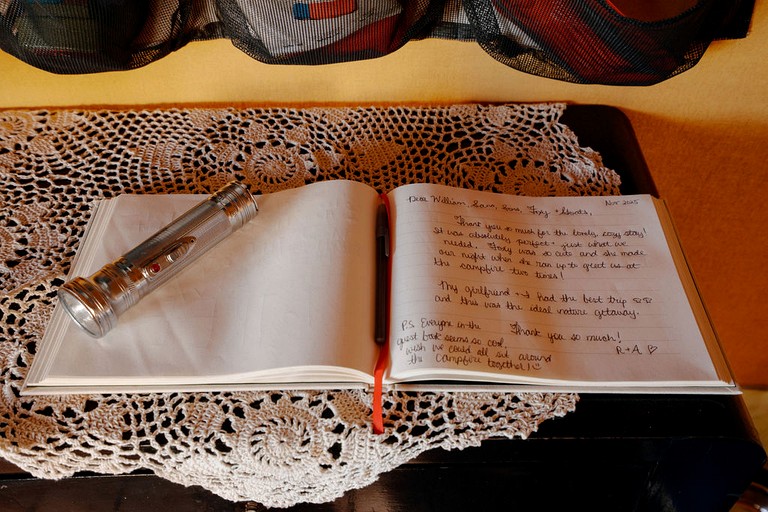 Dear William, Sara, Foxy + Ghosts, Nov 2025
Thank you so much for the lovely, cozy stay!
It was absolutely perfect + just what we
needed. Foxy was so cute and she made
our night when she ran up to greet us at
the campfire two times!
My girlfriend + I had the best trip
and this was the ideal nature getaway.
Thank you so much!
R + A ♡
P.S. Everyone in the
guest book seems so cool,
wish we could all sit around
the campfire together! ☺